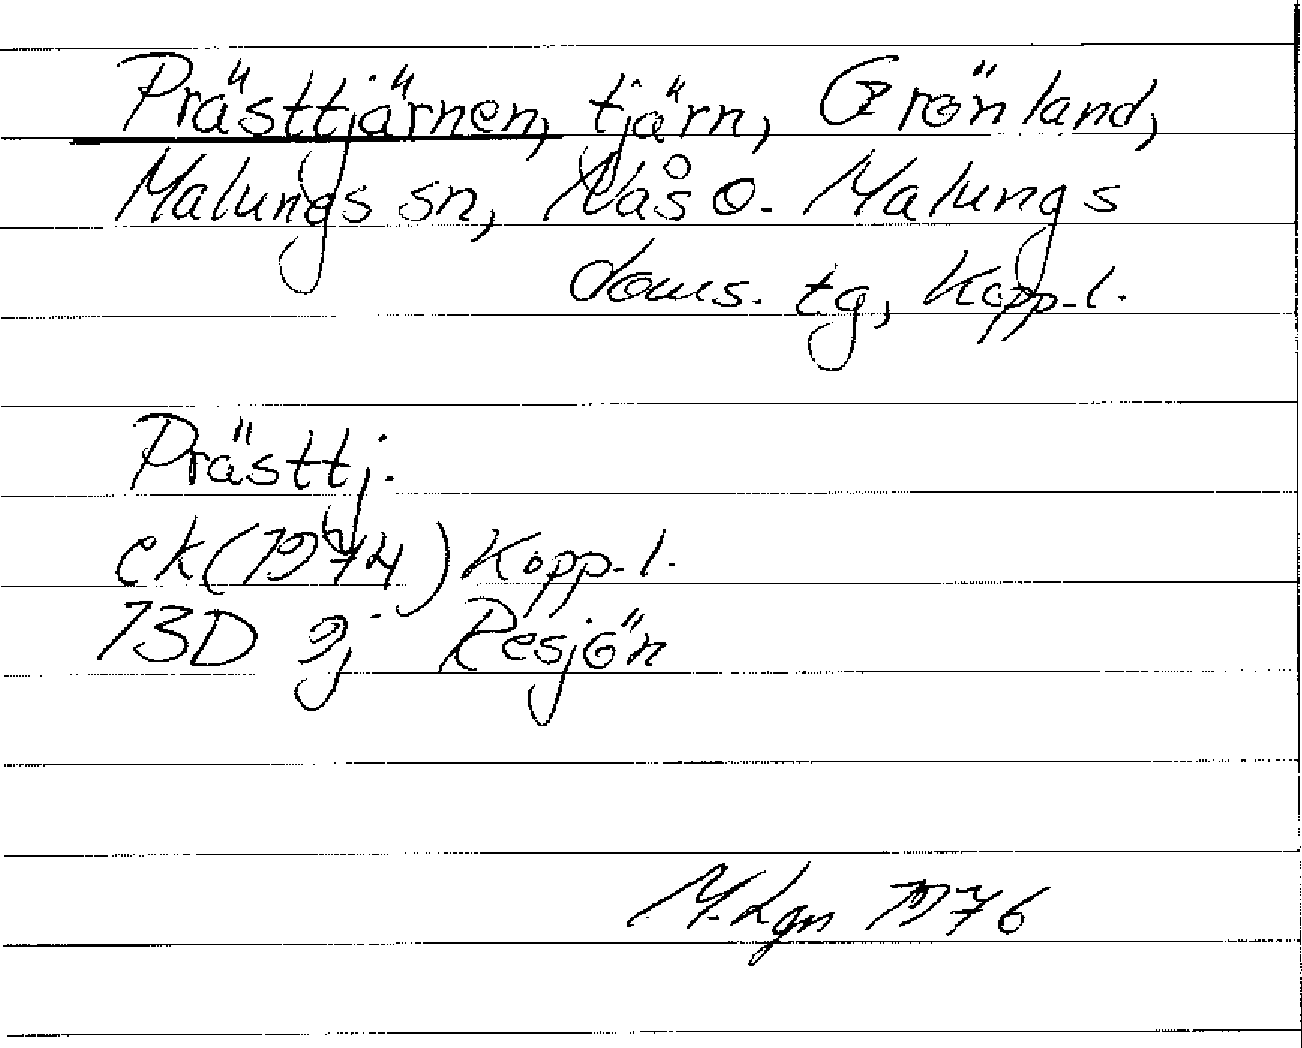 Prästtjärnen, tjärn, Grönland,
Malungs sn, Nås o. Malungs
doms. tg, Kopp. l.
Prästtj.
ek (1974) Kopp. l.
13D 9j Resjön
M. Lgn 1976